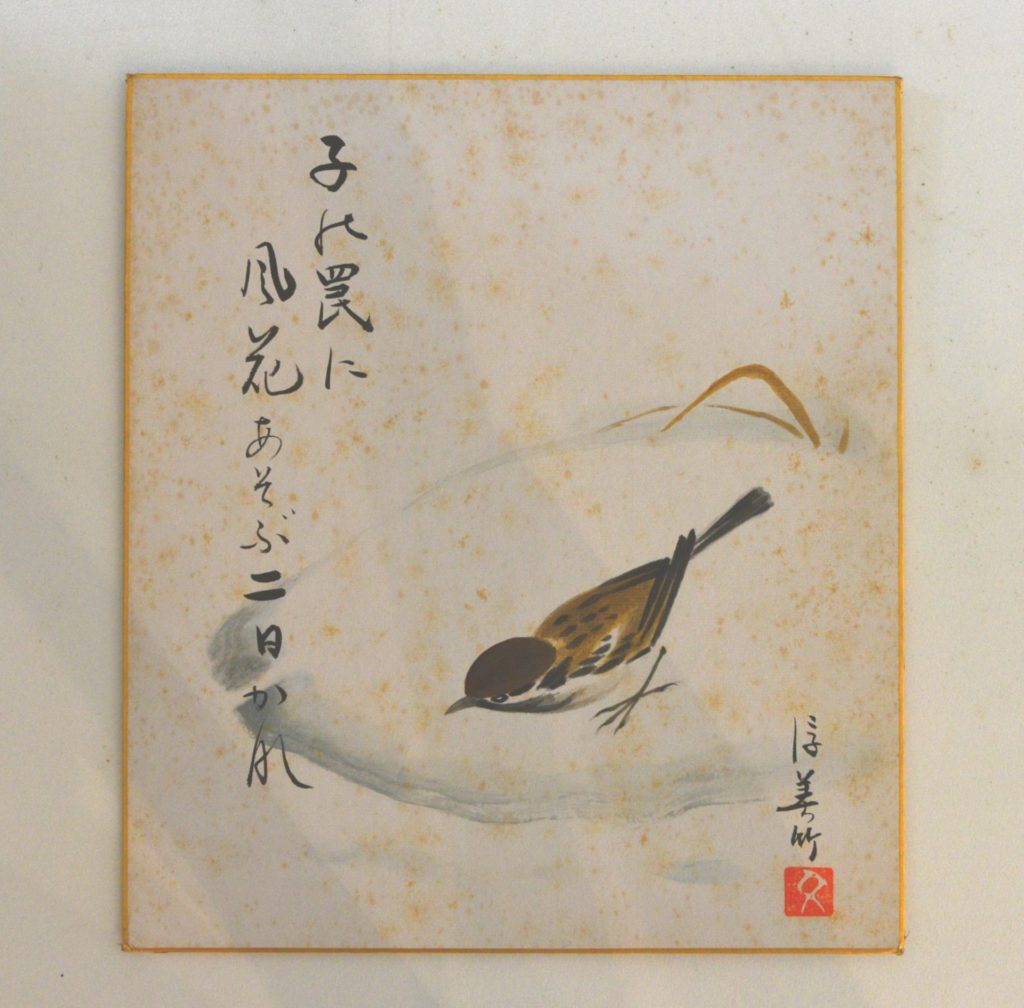 子の罠に
風花あそぶ二日かな
淳美竹